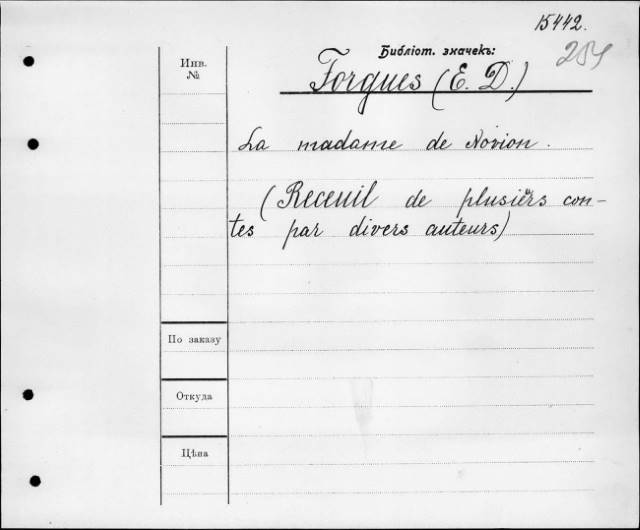 15442.
Библіот. значекъ:
254
Инв.
№
Forgues (E. D.)
La madame de Novion.
(Receuil de plusièrs con-
tes par divers auteurs)
По заказу
Откуда
Цѣна